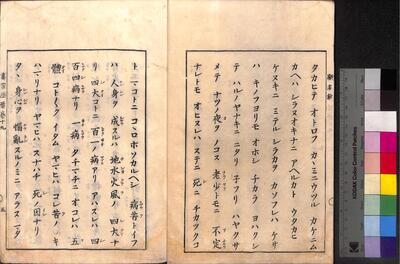 タカヒテ オトロフ カヽミニウツル カケニム
カヘハ シラヌオキナニ アヘルカト ウタカヒ
ケヌキニ ミテル シラカヲ カソフレハ ケサ
ハ キノフヨリモ オホシ チカラ ヨハクシ
テ ハルノヤナキニ ニタリ 子フリ ハヤクサ
メテ ナツノ夜ノ コヽス 老少トモニ 不定
ナレトモ オヒヌレハ ステニ 死ニ チカツクコ
ト マコトニ コヽロホソカルヘシ 病苦トイフ
ハ 人身ヲ 成スルハ 地水火風ノ 四大ナ
リ 四大コトニ 百一ノ病アリ アハスレハ 四
百四病ナリ 一病 タチマチニ オコレハ 五
體 コトヽヽク イタム ヤマヒハ コレ苦ノ キ
ハマリナリ ヤマヒハ スナハチ 死ノ因ナリ
タヽ 身心ヲ 惱亂スルノミニ アラス マタ
KODAK Color Control Patches